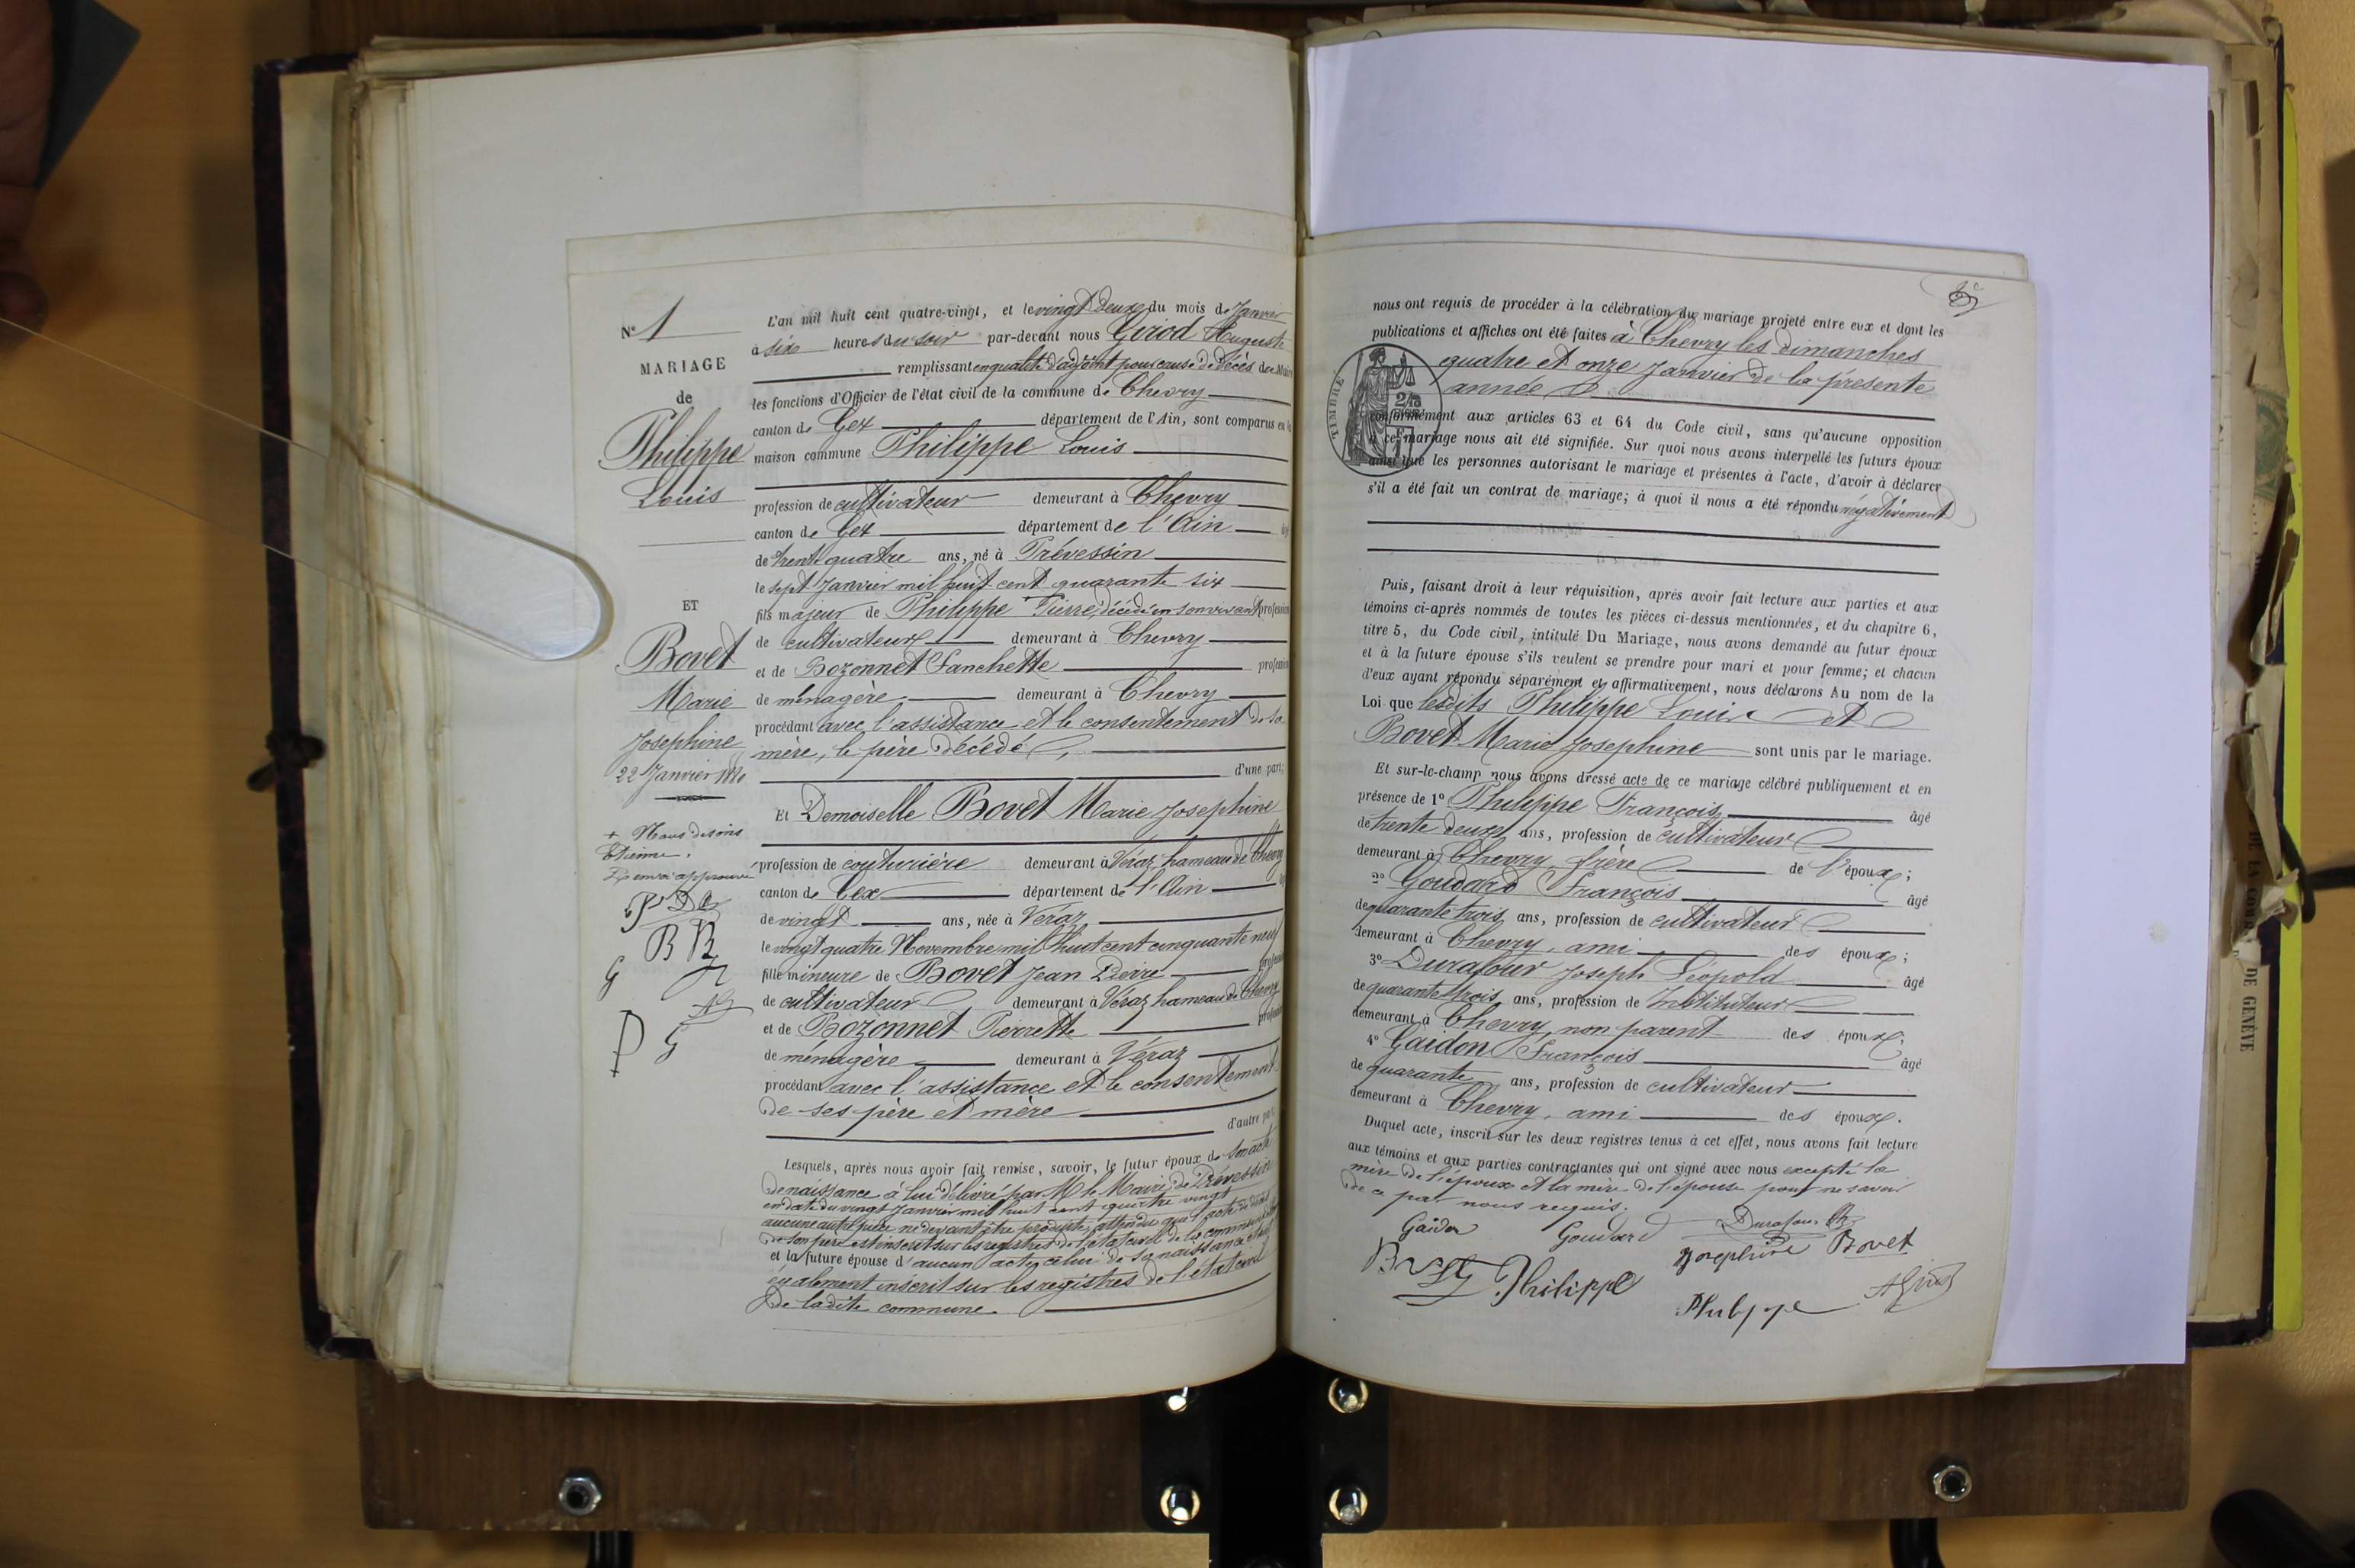 N° 1
MARIAGE
de
Philippe
Louis
ET
Bovet
Marie
Josephine
22 Janvier 1880
+ Nous disons
Etienne.
Renvoi approuvé
B B
G
AG
P G
L'an mil huit cent quatre-vingt, et le vingt deux du mois de Janvier
à six heures du soir par-devant nous Girod Auguste
remplissant en qualité d'adjoint pour cause de décès de Maire
les fonctions d'Officier de l'état civil de la commune de Chevry
canton de Gex département de l'Ain, sont comparus en la
maison commune Philippe Louis
profession de cultivateur demeurant à Chevry
canton de Gex département de l'Ain âgé
de trente quatre ans, né à Prévessin
le sept Janvier mil huit cent quarante six
fils majeur de Philippe Pierre, décédé en son vivant profession
de cultivateur demeurant à Chevry
et de Bozonnet Fanchette profession
de ménagère demeurant à Chevry
procédant avec l'assistance et le consentement de sa
mère, le père décédé,
d'une part;
Et Demoiselle Bovet Marie Josephine
profession de couturière demeurant à Véraz hameau de Chevry
canton de Gex département de l'Ain
de vingt ans, née à Véraz
le vingt quatre Novembre mil huit cent cinquante neuf
fille mineure de Bovet Jean Pierre profession
de cultivateur demeurant à Véraz hameau de Chevry
et de Bozonnet Pierrette profession
de ménagère demeurant à Véraz
procédant avec l'assistance et le consentement
de ses père et mère
d'autre part
Lesquels, après nous avoir fait remise, savoir, le futur époux de son acte
de naissance à lui délivré par M le Maire de Prévessin
en date du vingt Janvier mil huit cent quatre vingt
aucune autre pièce ne devant être produite, attendu que l'acte de décès
de son père est inscrit sur les registres de l'état civil de la commune
et la future épouse d'aucun acte, celui de sa naissance étant
également inscrit sur les registres de l'état civil
de ladite commune.
nous ont requis de procéder à la célébration du mariage projeté entre eux et dont les
publications et affiches ont été faites à Chevry les dimanches
quatre et onze Janvier de la présente
année
TIMBRE
conformément aux articles 63 et 64 du Code civil, sans qu'aucune opposition
à ce mariage nous ait été signifiée. Sur quoi nous avons interpellé les futurs époux
ainsi que les personnes autorisant le mariage et présentes à l'acte, d'avoir à déclarer
s'il a été fait un contrat de mariage; à quoi il nous a été répondu négativement
Puis, faisant droit à leur réquisition, après avoir fait lecture aux parties et aux
témoins ci-après nommés de toutes les pièces ci-dessus mentionnées, et du chapitre 6,
titre 5, du Code civil, intitulé Du Mariage, nous avons demandé au futur époux
et à la future épouse s'ils veulent se prendre pour mari et pour femme; et chacun
d'eux ayant répondu séparément et affirmativement, nous déclarons Au nom de la
Loi que lesdits Philippe Louis et
Bovet Marie Josephine sont unis par le mariage.
Et sur-le-champ nous avons dressé acte de ce mariage célébré publiquement et en
présence de 1° Philippe François, âgé
de trente deux ans, profession de cultivateur
demeurant à Chevry frère de l'époux;
2° Goudard François âgé
de quarante trois ans, profession de cultivateur
demeurant à Chevry, ami des époux;
3° Durafour Joseph Léopold âgé
de quarante trois ans, profession de Instituteur
demeurant à Chevry, non parent des époux;
4° Gaidon François âgé
de quarante ans, profession de cultivateur
demeurant à Chevry, ami des époux.
Duquel acte, inscrit sur les deux registres tenus à cet effet, nous avons fait lecture
aux témoins et aux parties contractantes qui ont signé avec nous excepté la
mère de l'époux et la mère de l'épouse pour ne savoir
de ce par nous requis.
Gaidon Goudard Durafour
Josephine Bovet
Philippe
Philippe AGirod
DE GENÈVE